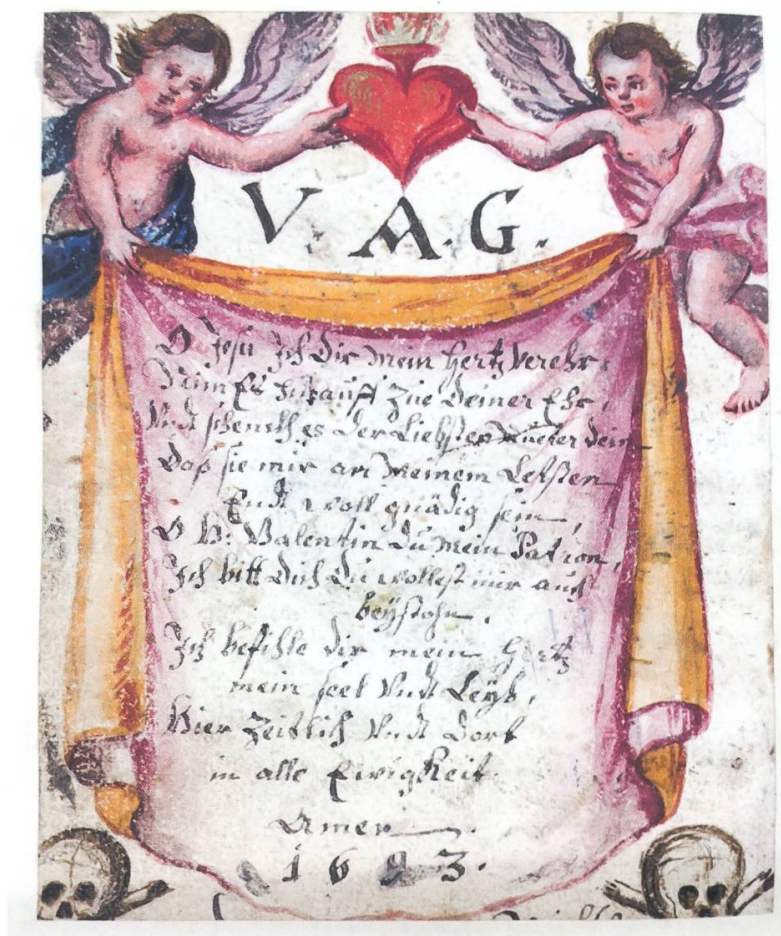 V. A. G.
O Jesu Ich Dir mein Hertz Verehr,
Nimb Es Jhr auff Zue Deiner Ehr,
Undt schenckh es der Liebsten Mueter dein
Das sie mir an Meinem Letsten
Endt woll gnädig sein,
O H: Valentin du mein Patron,
Ich bitt dich du wollest mir auch
beÿstohn.
Ich befihle dir mein Hertz
mein seel Undt Leÿb,
Hier Zeitlich Undt dort
in alle Ewigkeit.
Amen.
1683.